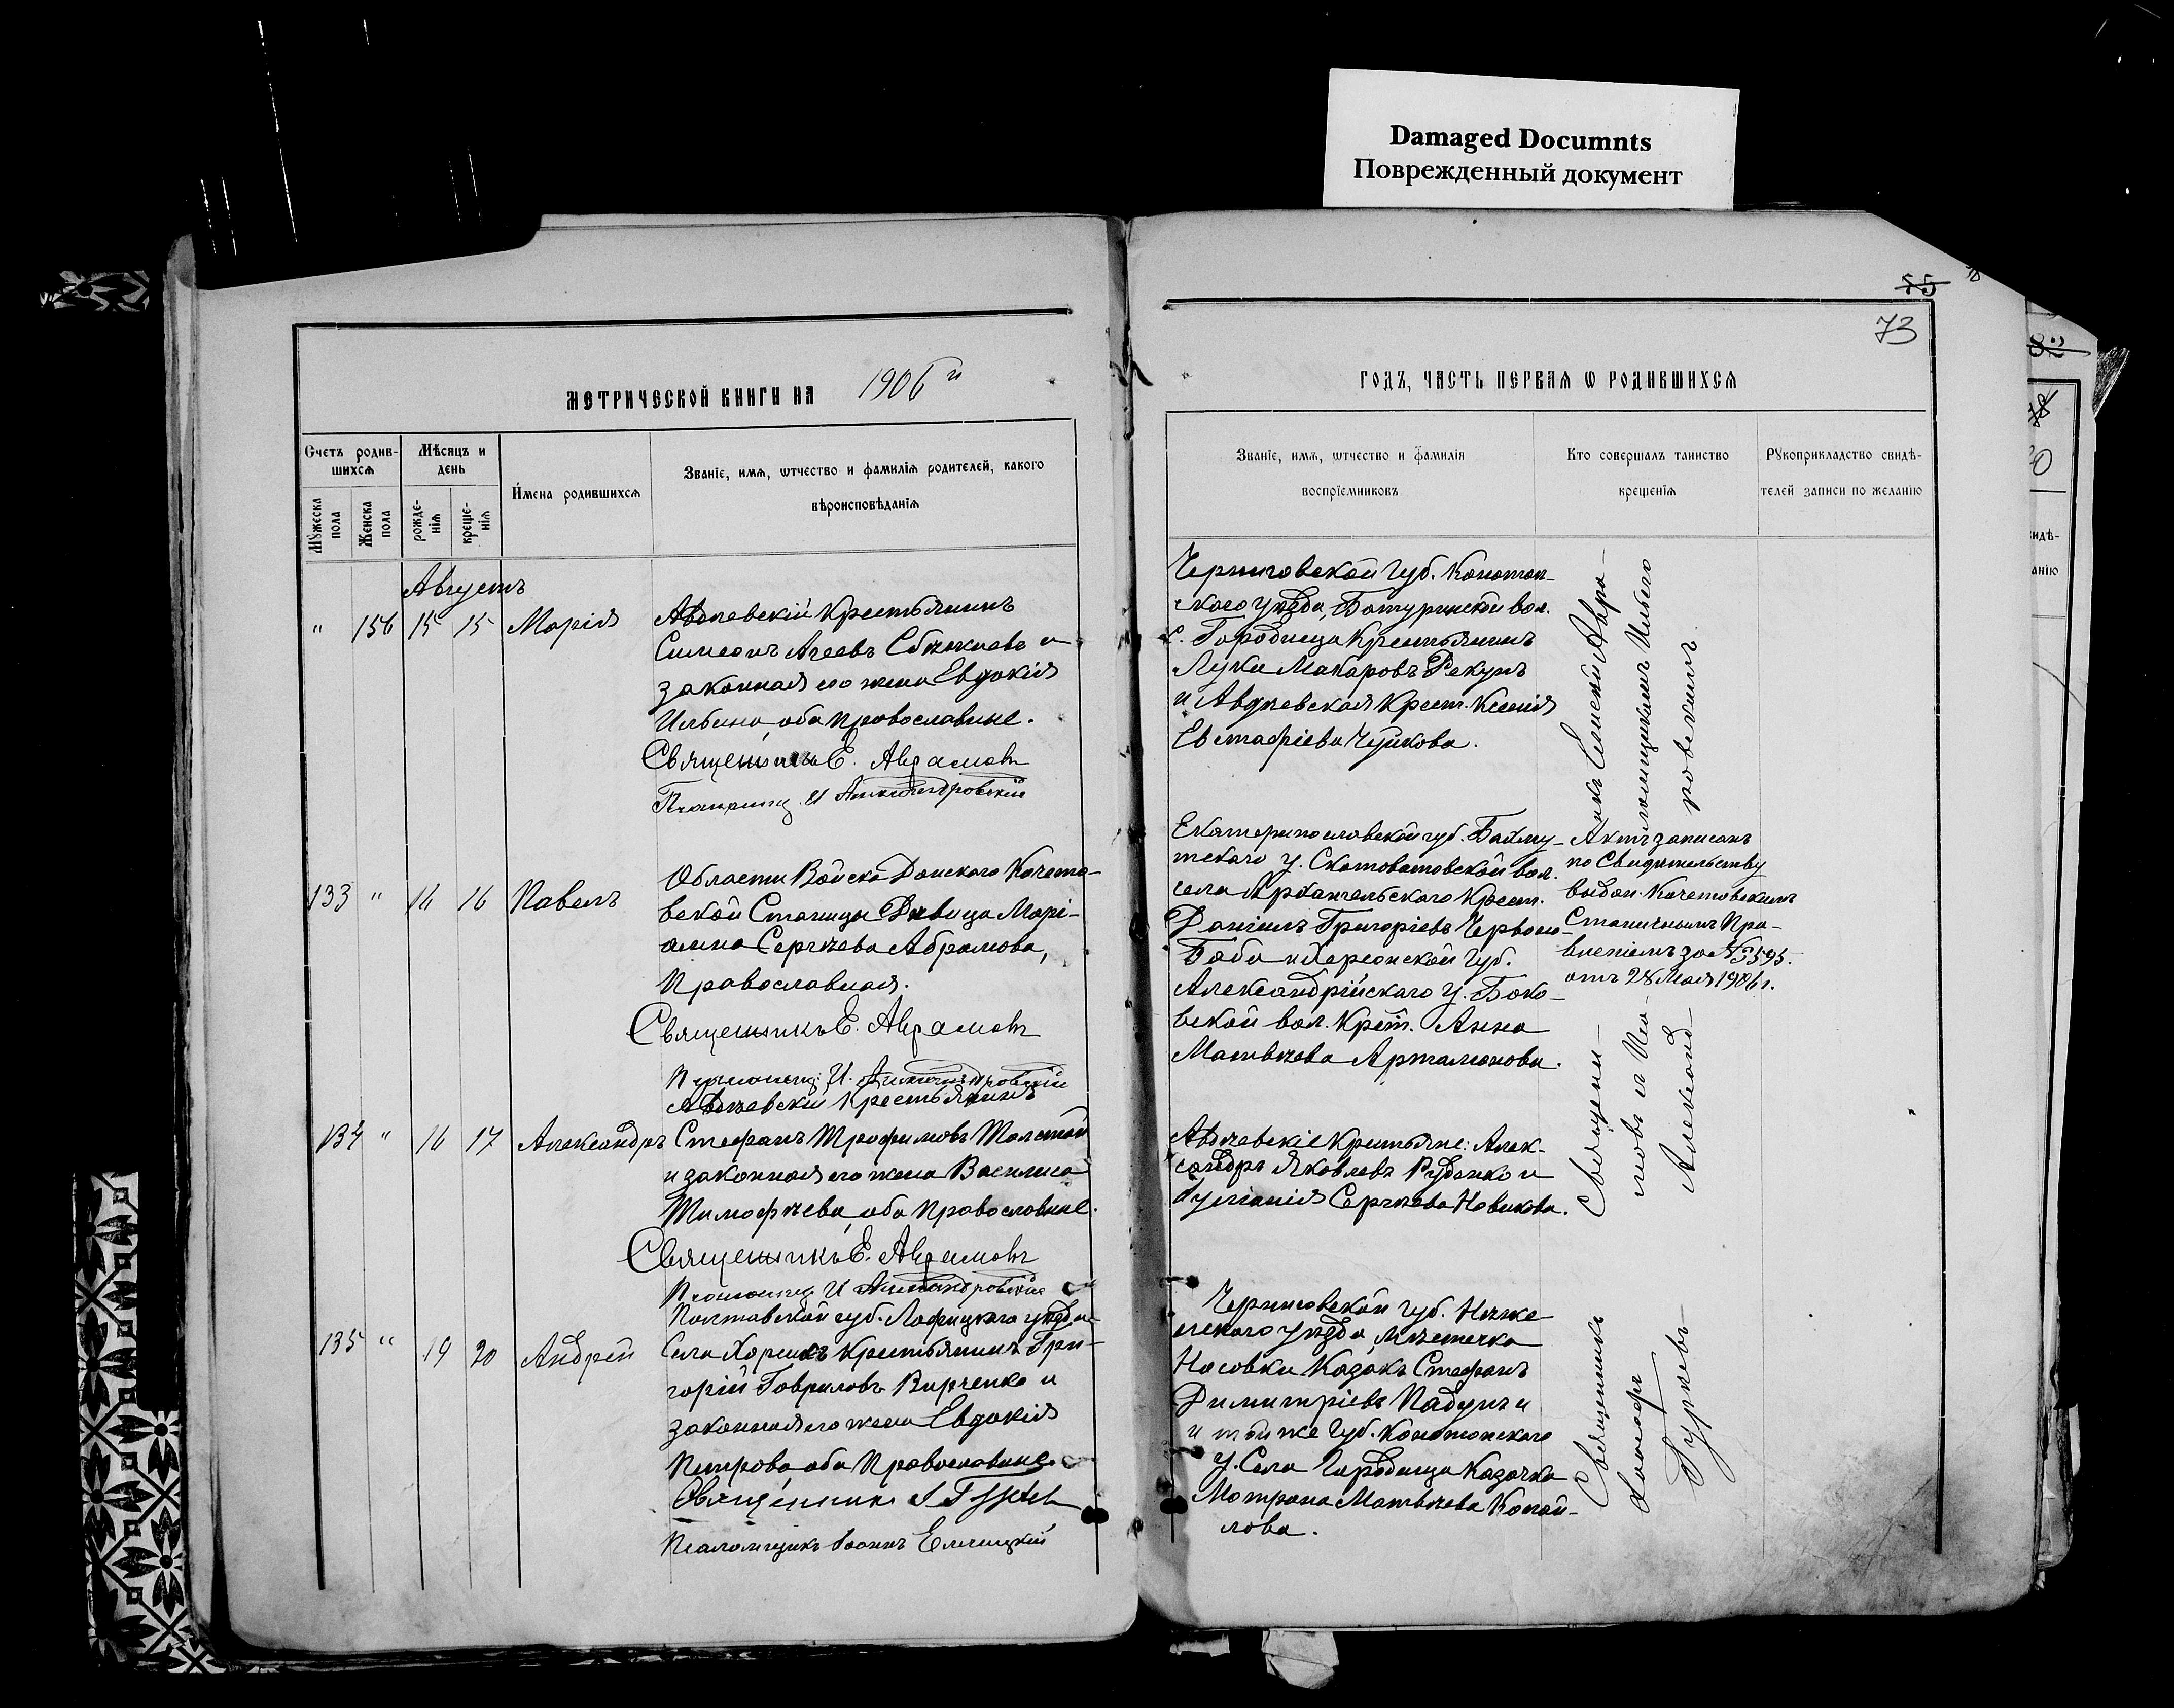 Damaged Documnts
Поврежденный документ
55
73
МЕТРИЧЕСКОЙ КНИГИ НА 1906 й
ГОДЪ, ЧАСТЬ ПЕРВАЯ Ѡ РОДИВШИХСЯ
Счетъ родив-
шихсѧ
Мꙋжеска
пола
Женска
пола
Мѣсяцъ и
день
рожде-
нїѧ
креще-
нїѧ
Имена родившихсѧ
Званїе, имѧ, ѡтчество и фамилїѧ родителей, какого
вѣроисповѣданїѧ
Званїе, имѧ, ѡтчество и фамилїѧ
воспрїемниковъ
Кто совершалъ таинство
крещенїѧ
Рꙋкоприкладство свидѣ-
телей записи по желанїю
Августъ
" 156 15 15 Марія
Авдѣевскій Крестьянинъ
Симеонъ Агеевъ и
законная его жена Евдокія
Ильина, оба православные.
Священникъ Е. Аврамовъ
Псаломщ. И Александровскій
Черниговской Губ. Конотоп-
скаго уѣзда, Батуринской вол.
с. Городища Крестьянинъ
Лука Макаровъ Рекунъ
и Авдѣевская Крест. Ксенія
Евстафіева Чуйкова.
133 " 16 16 Павелъ
Области Войска Донского Кочето-
вской Станицы Дѣвица Марі-
амна Сергѣева Абрамова,
Православная.
Священникъ Е. Аврамовъ
Псаломщ: И. Александровскій
Екатеринославской губ. Бахму-
тскаго у. Скотоватовской вол.
села Архангельскаго Крест.
Даніилъ Григоріевъ Червон-
Баба и Херсонской Губ.
Александрійскаго у. Боко-
вской вол. Крест. Анна
Матвѣева Артамонова.
Актъ записанъ
по Свидѣтельству
выдан. Кочетовскимъ
Станичнымъ Пра-
вленіемъ за № 3595.
отъ 28 Мая 1906 г.
134 " 16 17 Александръ
Авдѣевскій Крестьянинъ
Стефанъ Трофимовъ Толстой
и законная его жена Василиса
Тимофѣева, оба Православные.
Священникъ Е. Аврамовъ
Псаломщ И Александровскій
Авдѣевскіе Крестьяне: Алек-
сандръ Яковлевъ Руденко и
Сергѣева Новикова.
Священ-
никъ Аврa-
мовъ и Пса-
ломщикомъ
Александ-
ровскимъ
135 " 19 20 Андрей
Полтавской губ. Лохвицкаго уѣзда
Села Крестьянинъ Гри-
горій Гавриловъ Вирченко и
законная его жена Евдокія
Петрова оба Православные.
Священникъ
Псаломщикъ Іоаннъ
Черниговской губ. Нѣже-
нскаго уѣзда, Мѣстечка
Носовки Казакъ Стефанъ
Димитріевъ Падунъ и
и той же Губ. Конотопскаго
у. Села Городища Казачка
Матрона Матвѣева Копай-
лова.
Священникъ
Іосифъ
Гурьевъ